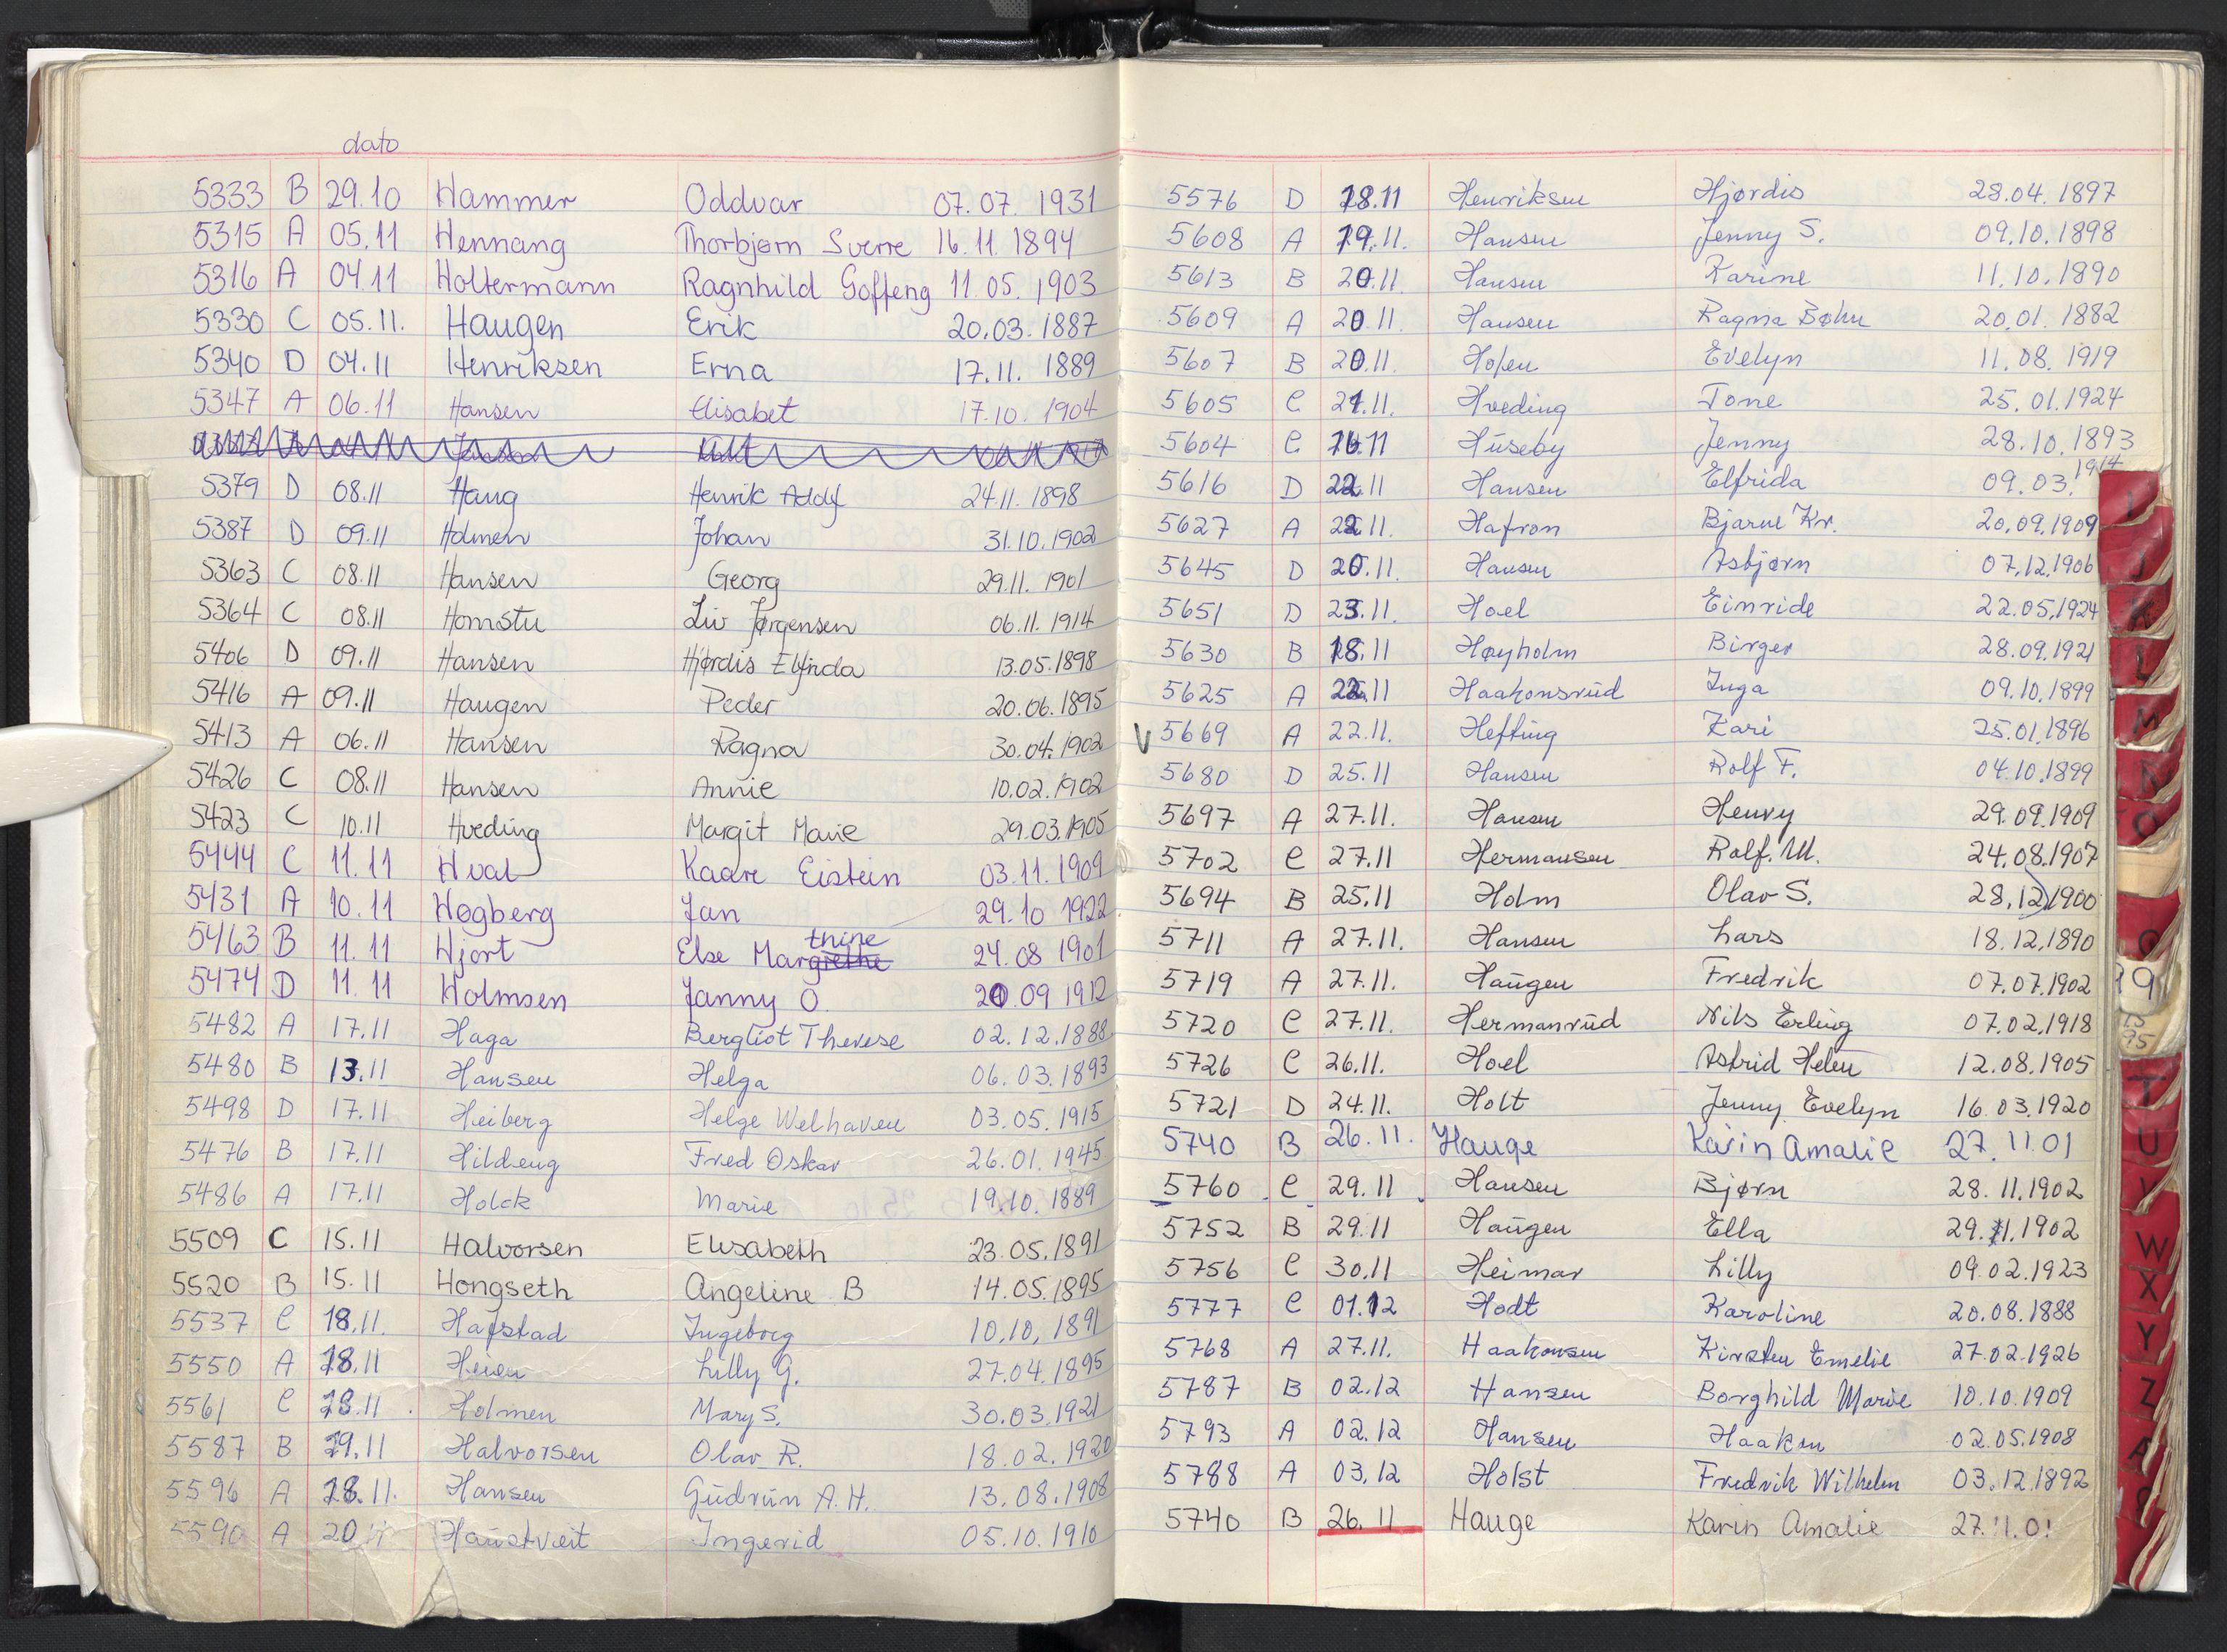 dato
5333 B 29.10 Hammer Oddvar 07.07. 1931
5315 A 05.11 Hennang Thorbjørn Sverre 16.11. 1894
5316 A 04.11 Holtermann Ragnhild Goffeng 11.05. 1903
5330 C 05.11. Haugen Erik 20.03. 1887
5340 D 04.11 Henriksen Erna 17.11. 1889
5347 A 06.11 Hansen Elisabet 17.10. 1904
5379 D 08.11 Haug Henrik Addf 24.11. 1898
5387 D 09.11 Holmen Johan 31.10.1902
5363 C 08.11 Hansen Georg 29.11. 1901
5364 C 08.11 Homstu Liv Jørgensen 06.11. 1914
5406 D 09.11 Hansen Hjørdis Elfrida 13.05.1898
5416 A 09.11 Haugen Peder 20.06.1895
5413 A 06.11 Hansen Ragna 30.04.1902
5426 C 08.11 Hansen Annie 10.02.1902
5423 C 10.11 Hveding Margit Marie 29.03.1905
5444 C 11.11 Hval Kaare Eistein 03.11.1909
5431 A 10.11 Høgberg Jan 29.10 1922
5463 B 11.11 Hjort Else Margrethe thine 24.08 1901
5474 D 11.11 Holmsen Janny O. 20.09 1912
5482 A 17.11 Haga Bergliot Therese 02.12.1888
5480 B 13.11 Hansen Helga 06.03.1893
5498 D 17.11 Heiberg Helge Welhaven 03.05.1915
5476 B 17.11 Hildeng Fred Oskar 26.01.1945
5486 A 17.11 Holck Marie 19.10.1889
5509 C 15.11 Halvorsen Elisabeth 23.05.1891
5520 B 15.11 Hongseth Angeline B 14.05.1895
5537 C 18.11. Hafstad Ingeborg 10.10.1891
5550 A 18.11 Heien Lilly G. 27.04.1895
5561 C 18.11. Holmen Mary S. 30.03.1921
5587 B 19.11 Halvorsen Olav R. 18.02.1920
5596 A 18.11. Hansen Gudrun A.H. 13.08.1908
5590 A 20.11 Haustveit Ingerid 05.10.1910
5576 D 18.11 Henriksen Hjørdis 28.04.1897
5608 A 19.11. Hansen Jenny S. 09.10.1898
5613 B 20.11. Hansen Karine 11.10.1890
5609 A 20.11. Hansen Ragna Bøhn 20.01.1882
5607 B 20.11. Hofen Evelyn 11.08.1919
5605 C 21.11. Hveding Tone 25.01.1924
5604 C 16.11 Huseby Jenny 28.10.1893
5616 D 22.11 Hansen Elfrida 09.03.1914
5627 A 22.11. Hafron Bjarne Kr. 20.09.1909
5645 D 20.11. Hansen Asbjørn 07.12.1906
5651 D 23.11. Hoel Einride 22.05.1924
5630 B 18.11 Høyholm Birger 28.09.1921
5625 A 22.11 Haakonsrud Inga 09.10.1899
V 5669 A 22.11. Hefting Kari 25.01.1896
5680 D 25.11 Hansen Rolf F. 04.10.1899
5697 A 27.11. Hansen Henry 29.09.1909
5702 C 27.11 Hermansen Rolf. M. 24.08.1907
5694 B 25.11 Holm Olav S. 28.12.1900
5711 A 27.11. Hansen Lars 18.12.1890
5719 A 27.11. Haugen Fredrik 07.07.1902
5720 C 27.11. Hermanrud Nils Erling 07.02.1918
5726 C 26.11. Hoel Astrid Helen 12.08.1905
5721 D 24.11. Holt Jenny Evelyn 16.03.1920
5740 B 26.11. Hauge Karin Amalie 27.11.01
5760 C 29.11 Hansen Bjørn 28.11.1902
5752 B 29.11 Haugen Ella 29.11.1902
5756 C 30.11 Heimar Lilly 09.02.1923
5777 C 01.12 Hodt Karoline 20.08.1888
5768 A 27.11. Haakonsen Kirsten Emelie 27.02.1926
5787 B 02.12 Hansen Borghild Marie 10.10.1909
5793 A 02.12 Hansen Haakon 02.05.1908
5788 A 03.12 Holst Fredrik Wilhelm 03.12.1892
5740 B 26.11 Hauge Karin Amalie 27.11.01
I
J
K
L
M
N
O
Q
T
U
V
W
X
Y
Z